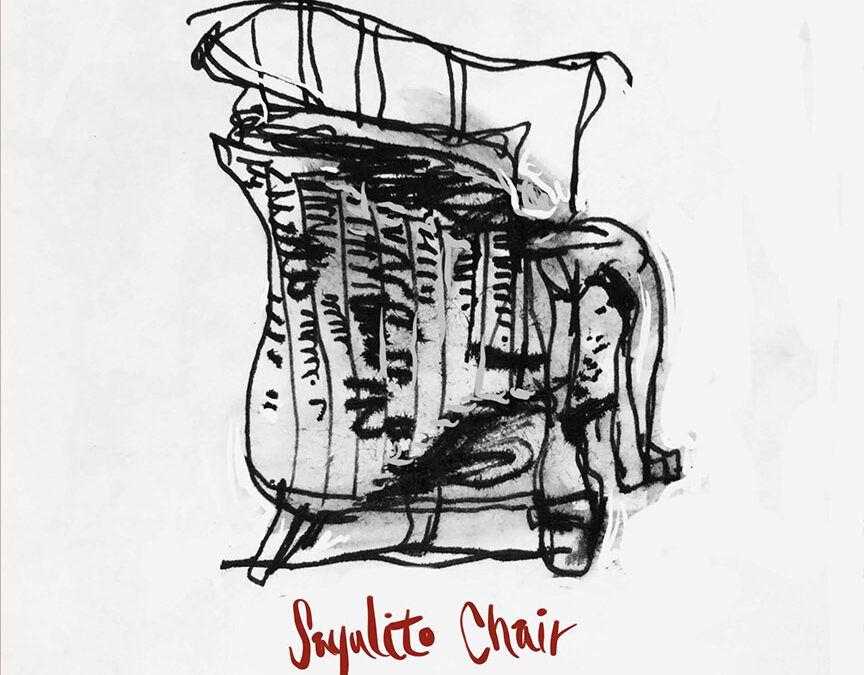 Sayulito Chair